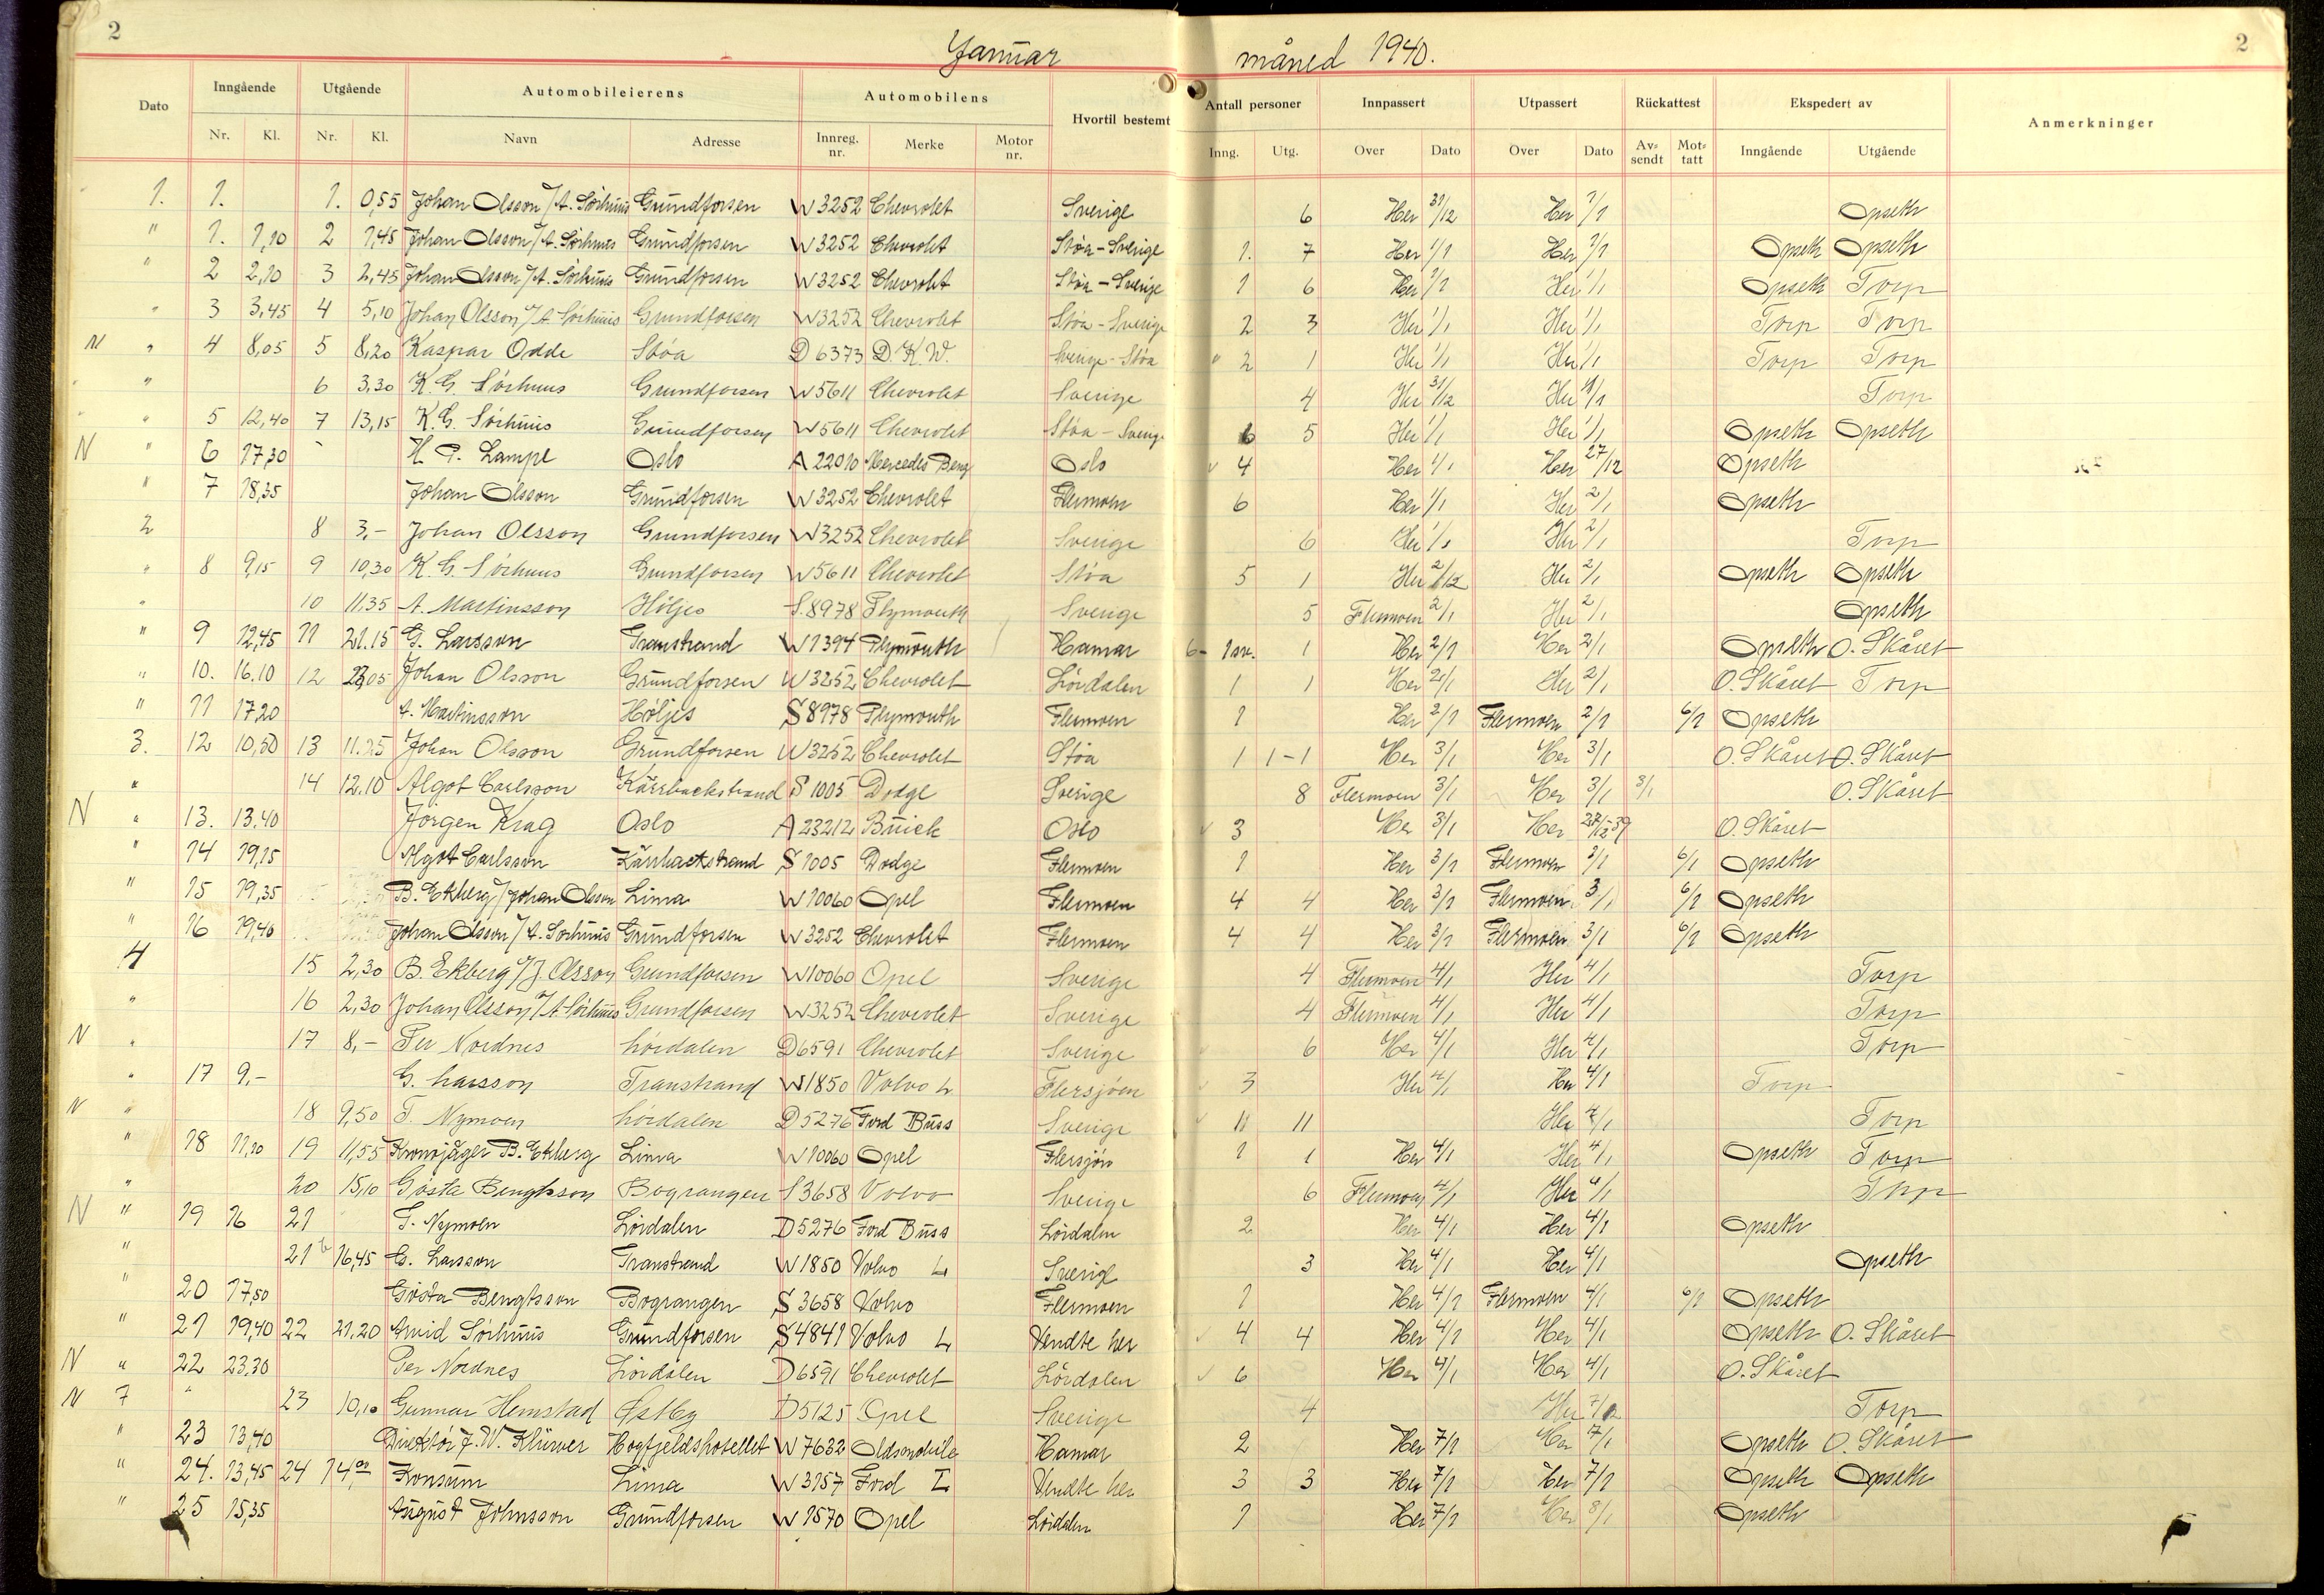 2
Januar måned 1940.
2
Dato Inngående Utgående Automobileierens Automobilens Hvortil bestemt Antall personer Innpassert Utpassert Rückattest Ekspedert av Anmerkninger
Nr. Kl. Nr. Kl. Navn Adresse Innreg. nr. Merke Motor nr. Inng. Utg. Over Dato Over Dato Av- sendt Mot- tatt Inngående Utgående
1. 1. 1. 0,55 Johan Olsson /A. Sörhuus Grundforsen W3252 Chevrolet Sverige 6 Her 31/12 Her 1/1 Opseth
" 1. 1,10 2 1,45 Johan Olsson /A. Sörhuus Grundforsen W3252 Chevrolet Stöa - Sverige 1. 7 Her 1/1 Her 1/1 Opseth Opseth
" 2 2,10 3 2,45 Johan Olsson /A. Sörhuus Grundforsen W3252 Chevrolet Stöa - Sverige 1 6 Her 1/1 Her 1/1 Opseth Torp
" 3 3,45 4 5,10 Johan Olsson /A Sörhuus Grundforsen W3252 Chevrolet Stöa - Sverige 2 3 Her 1/1 Her 1/1 Torp Torp
N " 4 8,05 5 8,20 Kaspar Odde Stöa D6373 D.K.W. Sverige - Stöa " 2 1 Her 1/1 Her 1/1 Torp Torp
" 6 3,30 K.G. Sörhuus Grundforsen W5611 Chevrolet Sverige 4 Her 31/12 Her 1/1 Torp
" 5 12,40 7 13,15 K.G. Sörhuus Grundforsen W5611 Chevrolet Stöa - Sverige 6 5 Her 1/1 Her 1/1 Opseth Opseth
N " 6 17,30 H. P. Lampe Oslo A 22010 Mercedes Benz Oslo 4 Her 1/1 Her 27/12 Opseth
" 7 18,35 Johan Olsson Grundforsen W3252 Chevrolet Flermoen 6 Her 1/1 Her 2/1 Opseth
2 8 3,- Johan Olsson Grundforsen W3252 Chevrolet Sverige 6 Her 1/1 Her 2/1 Torp
" 8 9,15 9 10,30 K.G. Sörhuus Grundforsen W5611 Chevrolet Stöa 5 1 Her Her 2/1 Opseth Opseth
" 10 11,35 A. Martinsson Höljes S.8978 Plymouth Sverige 5 Flermoen 2/1 Her 2/1 Opseth
" 9 12,45 11 21.15 G. Larsson Transtrand W1394 Plymouth Hamar 6- 1sv. 1 Her 2/1 Her 2/1 Opseth O. Skåret
" 10. 16.10 12 23,05 Johan Olsson Grundforsen W3252 Chevrolet Lördalen 1 1 Her 2/1 Her 2/1 O. Skåret Torp
" 11 17,20 A. Martinsson Höljes S8978 Plymouth Flermoen 1 Her 2/1 Flermoen 2/1 6/1 Opseth
3. 12 10,50 13 11.25 Johan Olsson Grundforsen W3252 Chevrolet Stöa 1 1-1 Her 3/1 Her 3/1 O. Skåret O. Skåret
" 14 12.10 Algot Carlsson Kärrbackstrand S 1005 Dodge Sverige 8 Flermoen 3/1 Her 3/1 3/1 O. Skåret
N " 13. 13.40 Jörgen Krag Oslo A23212 Buick Oslo 3 Her 3/1 Her O. Skåret
" 14 19,15 Algot Carlsson Kärrbackstrand S 1005 Dodge Flermoen 1 Her 3/1 Flermoen 3/1 6/1 Opseth
" 15 19,35 B. Ekberg /Johan Olsson Lima W10060 Opel Flermoen 4 4 Her 3/1 Flermoen 3/1 6/1 Opseth
" 16 19,40 Johan Olsson /A. Sörhuus Grundforsen W3252 Chevrolet Flermoen 4 4 Her 3/1 Flermoen 3/1 6/1 Opseth
4 15 2,30 B Ekberg /J. Olsson Grundforsen W10060 Opel Sverige 4 Flermoen 4/1 Her 4/1 Torp
" 16 2,30 Johan Olsson /A Sörhuus Grundforsen W3252 Chevrolet Sverige 4 Flermoen 4/1 Her 4/1 Torp
N " 17 8,- Per Nordnes Lördalen D6591 Chevrolet Sverige 6 Her 4/1 Her 4/1 Torp
" 17 9,- G. Larsson Transtrand W1850 Volvo L Flersjöen 3 Her 4/1 Her 4/1 Torp
N " 18 9,50 T. Nymoen Lördalen D5276 Ford Buss Sverige 11 11 Her 4/1 Torp
" 18 11,10 19 11,55 Kronojäger B. Ekberg Lima W10060 Opel Flersjön 1 1 Her 4/1 Her 4/1 Opseth Torp
" 20 15,10 Gösta Bengtsson Bograngen S3658 Volvo Sverige 6 Flermoen 4/1 Her 4/1 Torp
N " 19 16 21 T. Nymoen Lördalen D5276 Ford Buss Lördalen 2 Her 4/1 Her 4/1 Opseth
" 21 b 16,45 G. Larsson Transtrand W1850 Volvo L Sverige 3 Her 4/1 Her 4/1 Opseth
" 20 17,50 Gösta Bengtsson Bograngen S 3658 Volvo Flermoen 1 Her 4/1 Flermoen 4/1 6/1 Opseth
" 21 19,40 22 21,20 Sörhuus Grundforsen S4841 Volvo L Vendte her 4 4 Her 4/1 Her 4/1 Opseth O. Skåret
N " 22 23,30 Per Nordnes Lördalen D6591 Chevrolet Lördalen 6 Her 4/1 Her 4/1 O. Skåret
N 7 " 23 10,10 Gunnar Hemstad Østby D5125 Opel Sverige 4 Her Torp
" 23 13,40 Direktör J.W. Klüwer Hogfjeldshotellet W7632 Oldsmobile Hamar 2 Her 7/1 Her 7/1 Opseth O. Skåret
" 24. 13,45 24 14,00 Konsum Lima W3157 Ford L Vendte her 3 3 Her 7/1 Her 7/1 Opseth Opseth
" 25 15,35 August Johnsson Grundforsen W 1570 Opel Lördalen 1 Her 7/1 Her 8/1 Opseth